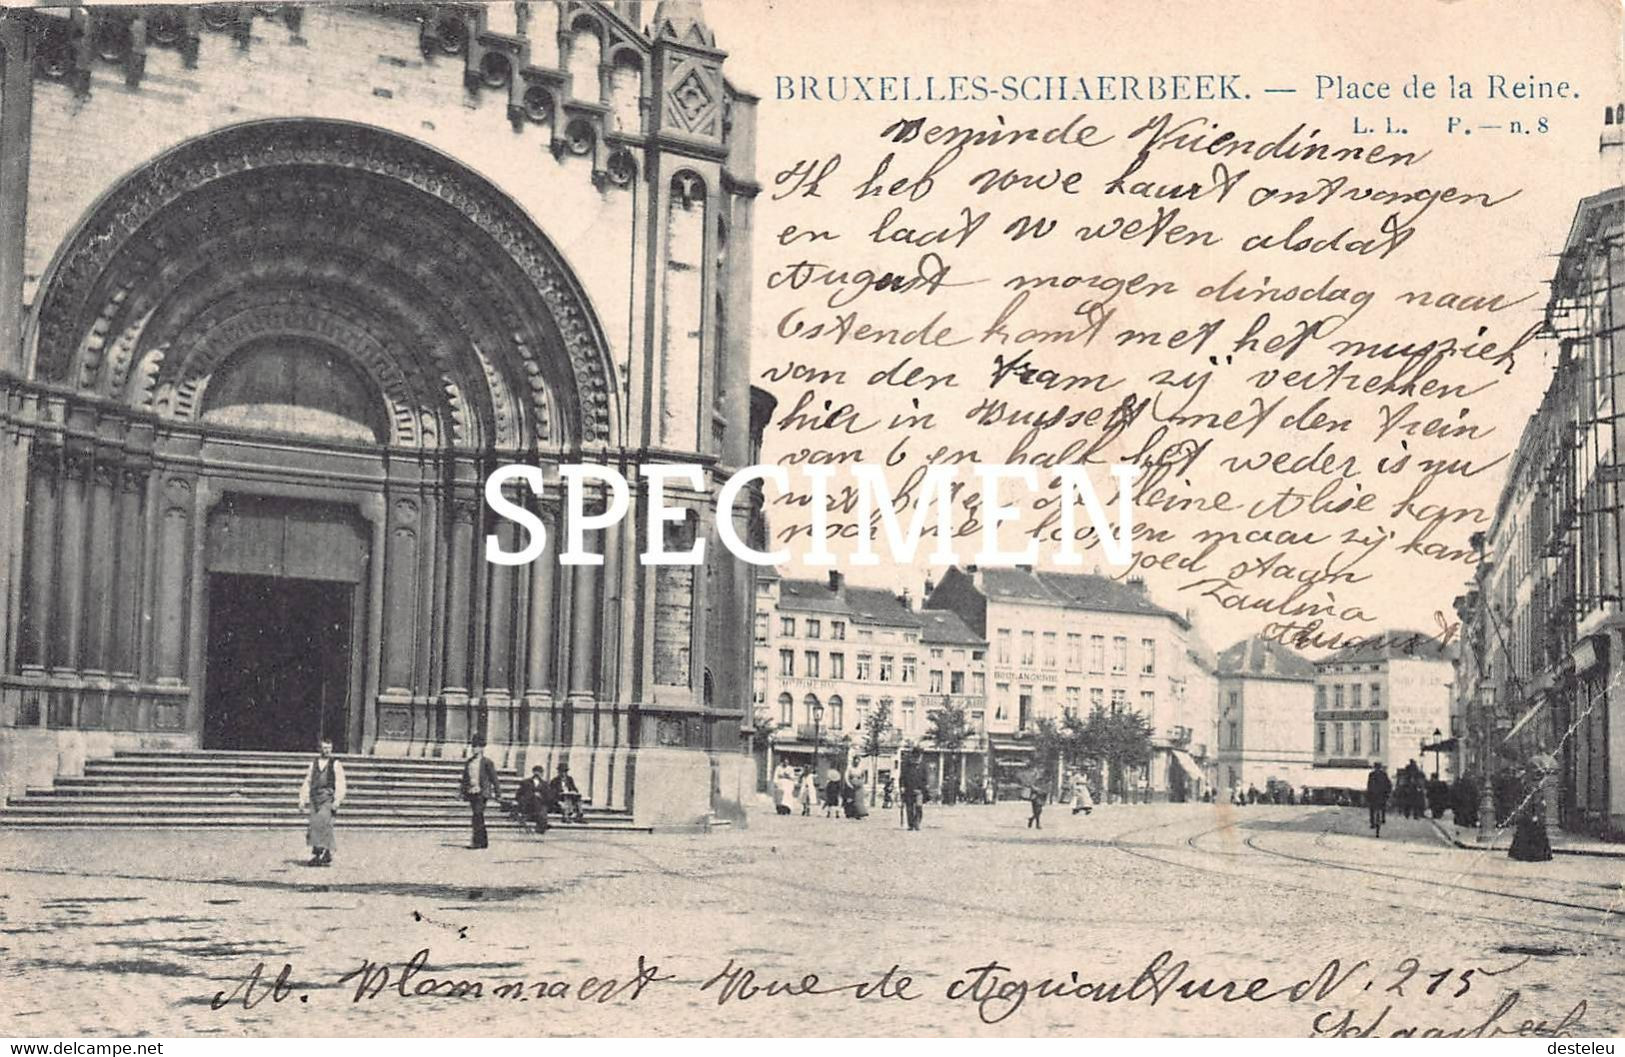 BRUXELLES-SCHAERBEEK. — Place de la Reine.
L. L. P. — n. 8
Beminde Vriendinnen
Ik heb Uwe kaart ontvangen
en laat U weten alsdat
August morgen dinsdag naar
Ostende komt met het muziek
van den Tram zij vertrekken
hier in Brussel met den trein
van 6 en half het weder is nu
wat beter de kleine Alise kan
noch niet loopen maar zij kan
goed staan
Paulina
BOULANGERIE
SPECIMEN
M. Vlaminaert Rue de Agriculture N. 215
Schaarbeek
delcampe.net
desteleu